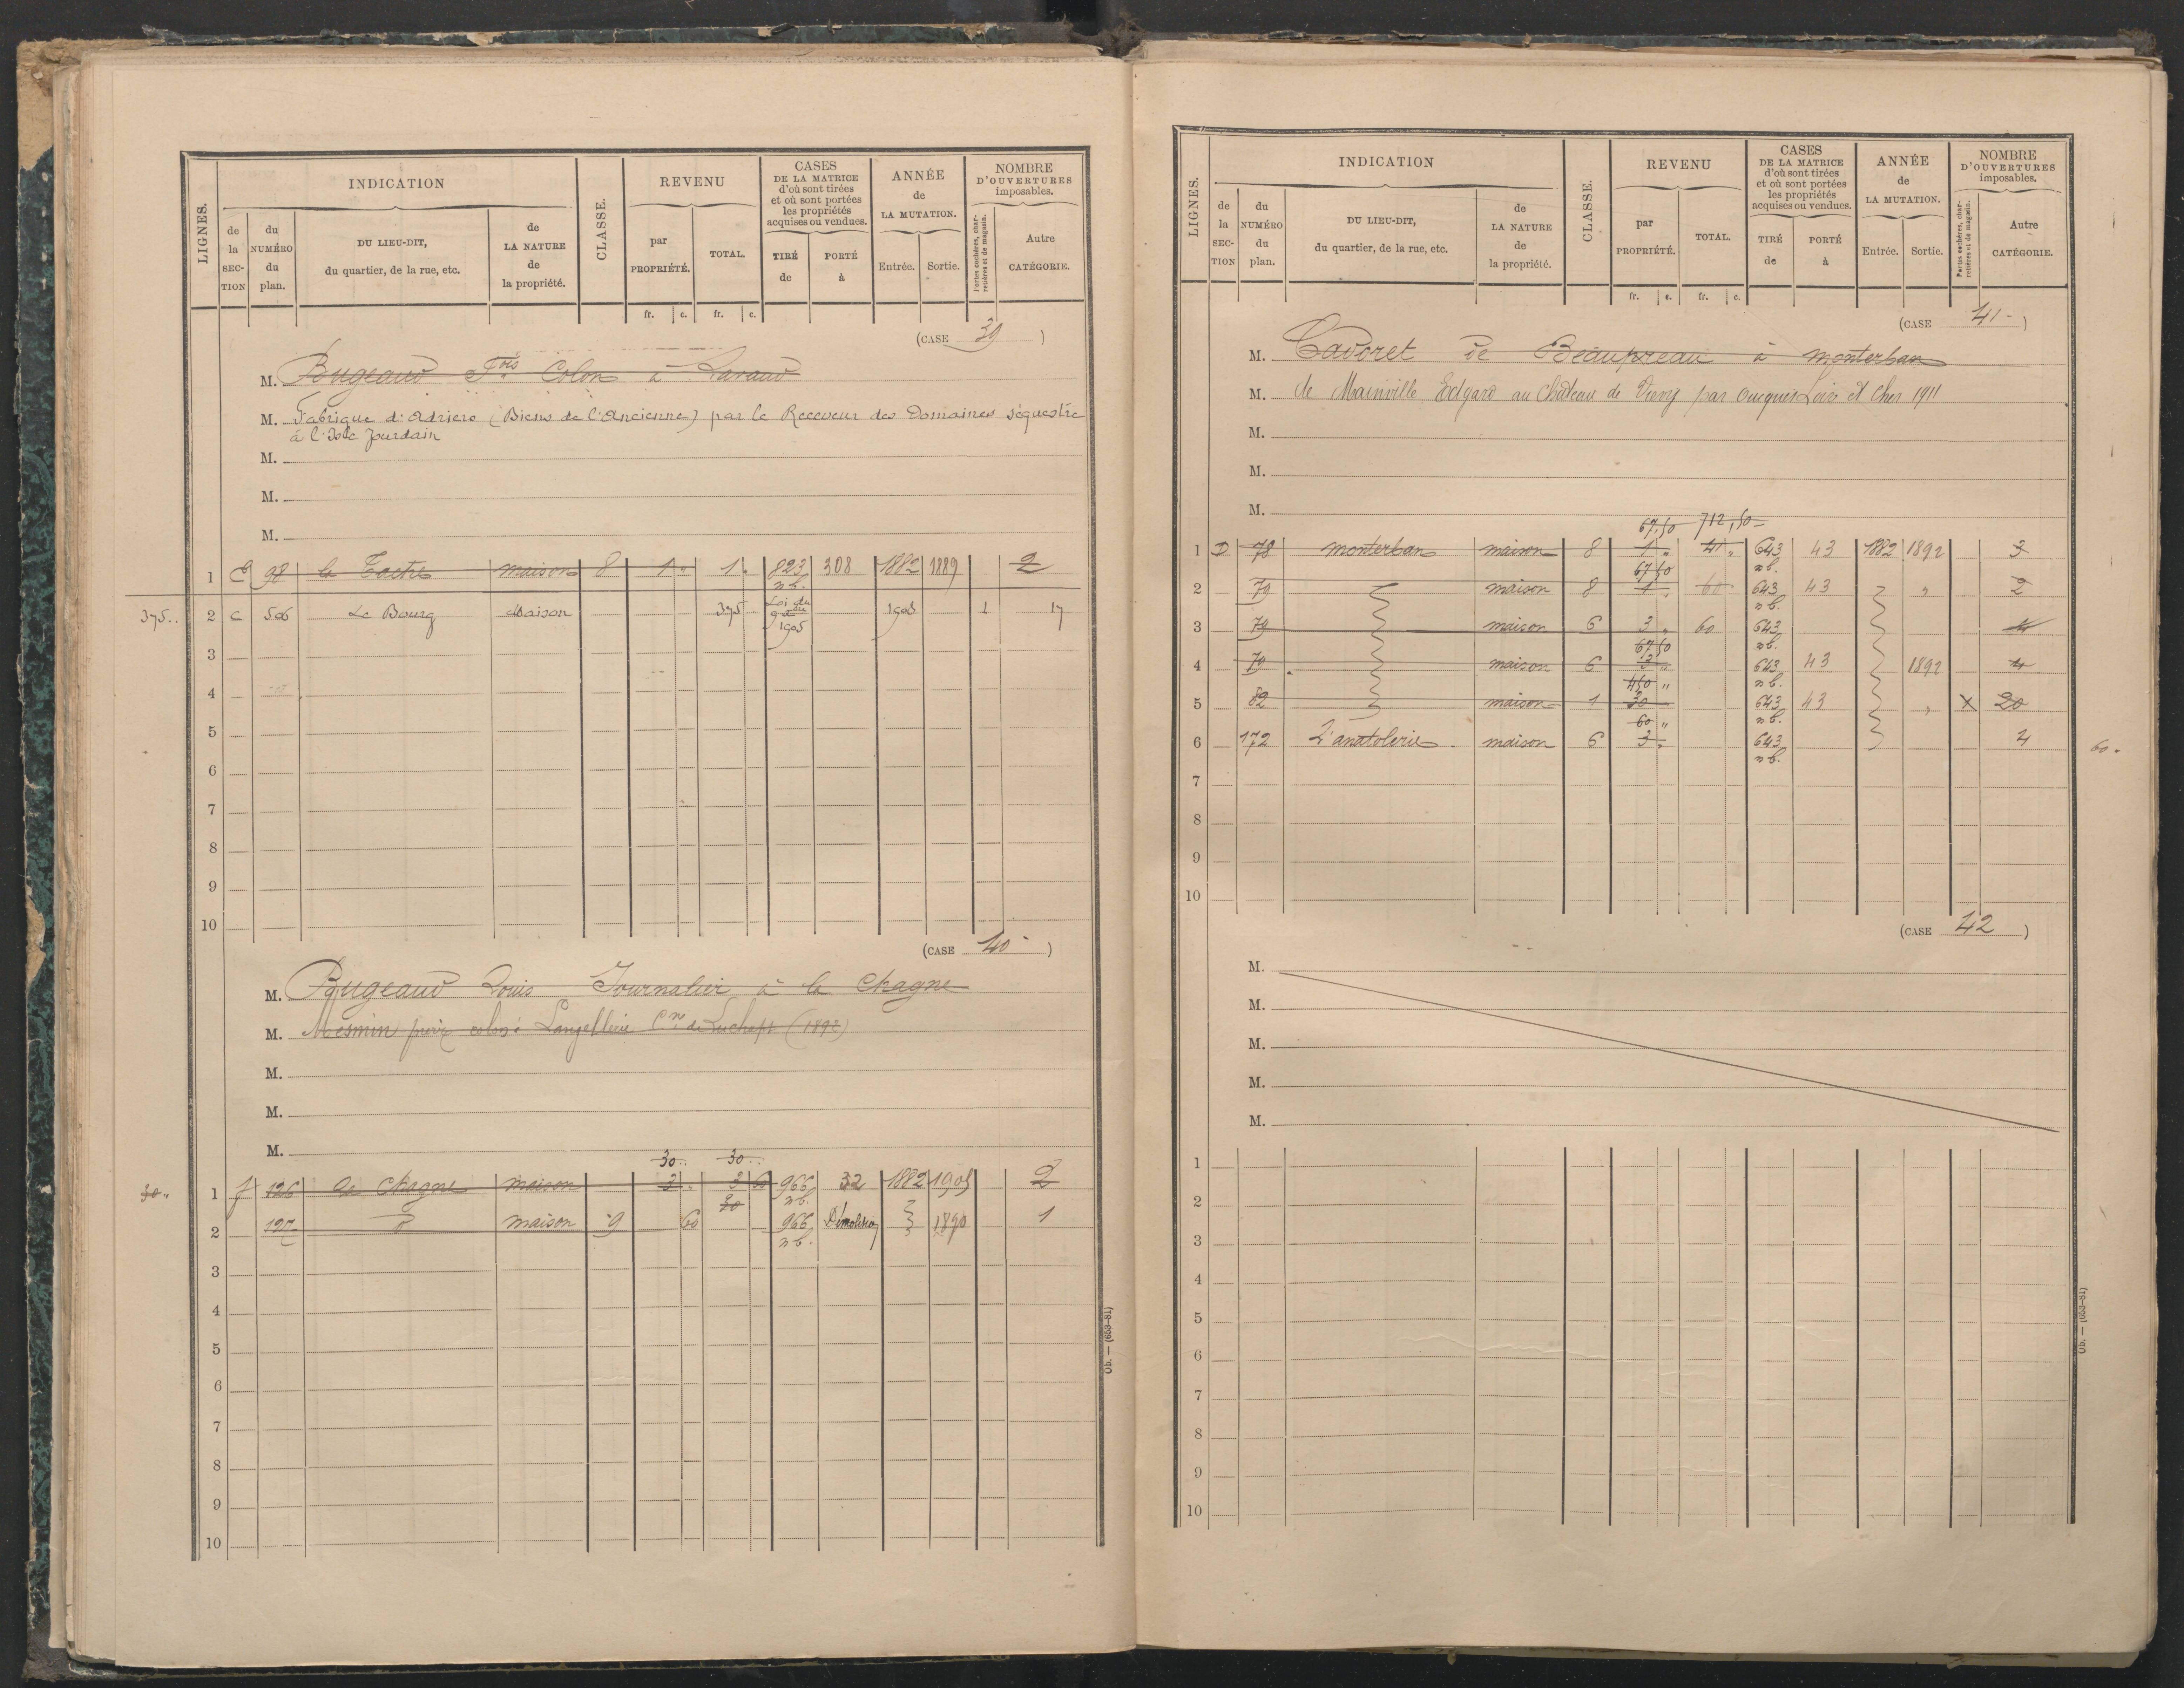 LIGNES.
INDICATION
CLASSE.
REVENU
CASES
DE LA MATRICE
d'où sont tirées
et où sont portées
les propriétés
acquises ou vendues.
ANNÉE
de
LA MUTATION.
NOMBRE
D'OUVERTURES
imposables.
de la SEC-TION
du NUMÉRO du plan.
DU LIEU-DIT,
du quartier, de la rue, etc.
de LA NATURE de la propriété.
par PROPRIÉTÉ.
TOTAL.
TIRÉ de
PORTÉ à
Entrée.
Sortie.
Portes cochères, char-retières et de magasin.
Autre CATÉGORIE.
fr. c. fr. c.
(CASE 39)
M. Bugeaud Fois Colon à Lavaud
M. Fabrique d'Adriers (Biens de l'Ancienne) par le Receveur des Domaines séquestre
à l'Isle Jourdain
M.
M.
M.
1 98 maison 8 1 " 1 " 823 308 1882 1889 2
n b.
375.. 2 C 506 Le Bourg Maison 375 Loi du 9 1905 1908 1 17
3
4
5
6
7
8
9
10
(CASE 40)
M. Bugeaud Louis Journalier à la Chagne
M. Mesmin colon Cne de Luchapt (1892)
M.
M.
M.
30.. 30..
30.. 1 126 la Chagne maison 3 " 3 60 966 32 1882 1905 2
n b. 30
2 127 d° maison 9 60 966 Démolition 1890 1
n b.
3
4
5
6
7
8
9
10
Ob. — (653-81)
LIGNES.
INDICATION
CLASSE.
REVENU
CASES
DE LA MATRICE
d'où sont tirées
et où sont portées
les propriétés
acquises ou vendues.
ANNÉE
de
LA MUTATION.
NOMBRE
D'OUVERTURES
imposables.
de la SEC-TION
du NUMÉRO du plan.
DU LIEU-DIT,
du quartier, de la rue, etc.
de LA NATURE de la propriété.
par PROPRIÉTÉ.
TOTAL.
TIRÉ de
PORTÉ à
Entrée.
Sortie.
Portes cochères, char-retières et de magasin.
Autre CATÉGORIE.
fr. c. fr. c.
(CASE 41)
M. Cavoret de Beaupreau à monterban
M. de Mainville Edgard au Château de par Ouques Loir et Cher 1911
M.
M.
M.
67,50 712,50
1 D 78 monterban maison 8 1 " 41 " 643 43 1882 1892 3
67 50 n b.
2 79 maison 8 1 " 60 643 43 " 2
n b.
3 79 maison 6 3 " 60 643 4
67 50 n b.
4 79 maison 6 3 " 643 43 1892 4
450 " n b.
5 82 maison 1 30 643 43 " x 20
60 " n b.
6 172 L'anatolerie maison 6 3 " 643 4 60 "
n b.
7
8
9
10
(CASE 42)
M.
M.
M.
M.
M.
1
2
3
4
5
6
7
8
9
10
Ob. — (653-81)